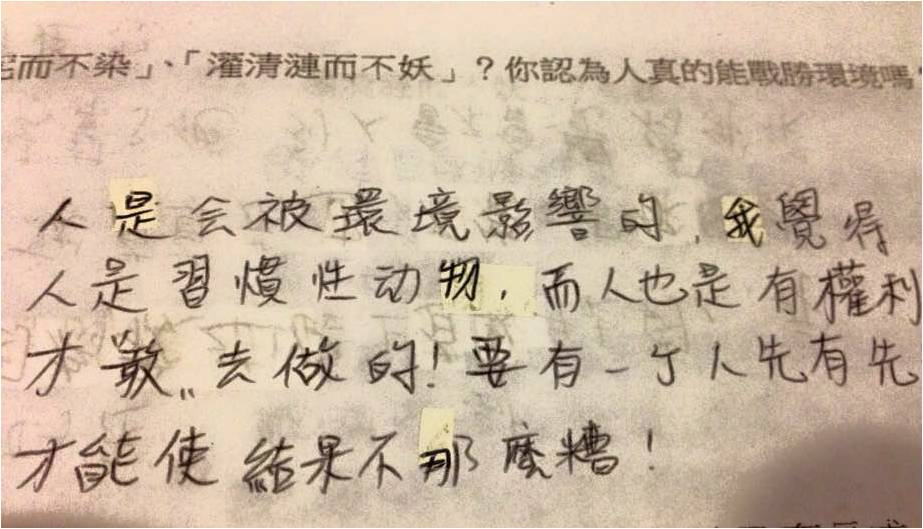 而不染」、「灌清漣而不妖」?你認為人真的能戰勝環境嗎
人是会被環境影響的,我覺得
人是習慣性动物,而人也是有權利
才敢去做的!要有一个人先有先
才能使結果不那麼糟!